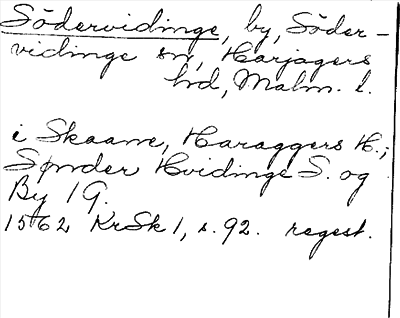 Södervidinge, by, Söder-
vidinge sn, Harjagers
hd, Malm. l.
i Skaane, Haraggers H.;
Sønder Hvidinge S. og
By 1 G.
1562 KrSk 1, s. 92. regest.